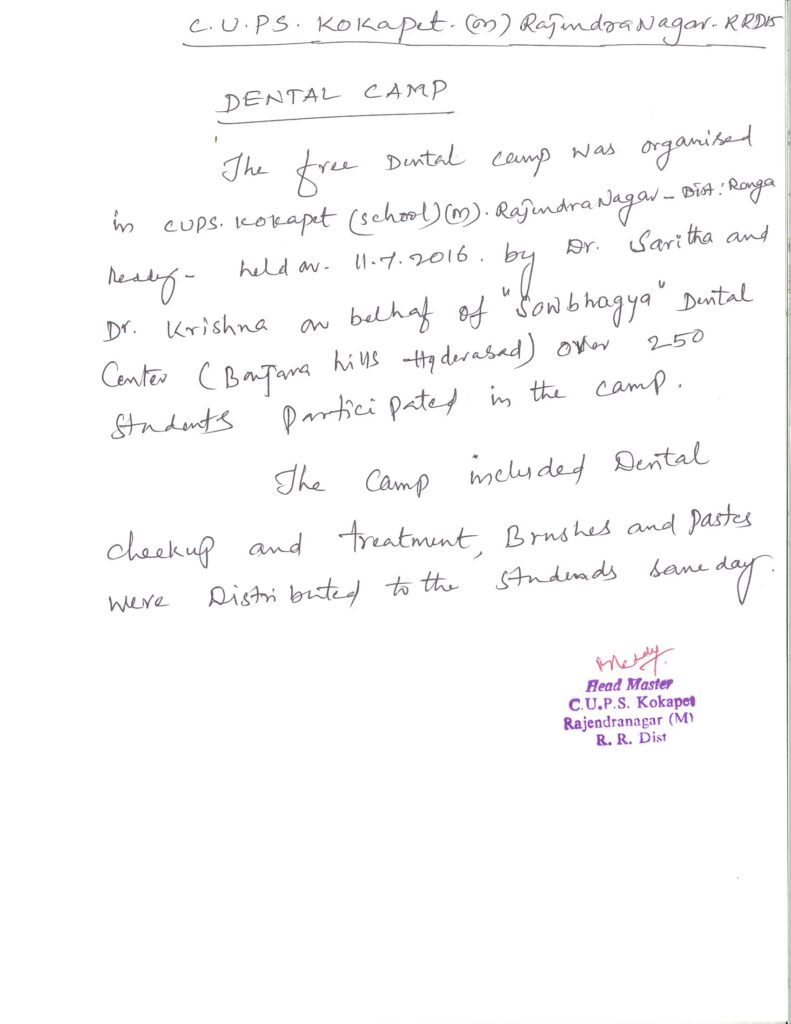 C.U.PS. Kokapet. (m) Rajindra Nagar. RRDis
DENTAL CAMP
The free Dental camp was organised
in CUPS. Kokapet (school) (m). Rajindra Nagar - Dist: Ranga
Ready - held on. 11.7.2016. by Dr. Saritha and
Dr. Krishna on belhaf of "Sowbhagya" Dental
Center (Banjara hills Hyderabad) over 250
students participated in the camp.
The camp included Dental
checkup and treatment, Brushes and pastes
were Distributed to the students same day.
Head Master
C.U.P.S. Kokapet
Rajendranagar (M)
R. R. Dist